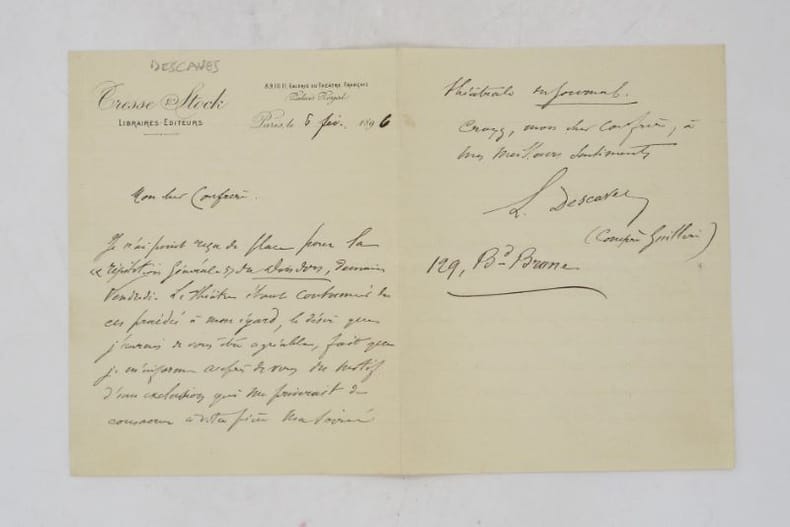 DESCAVES
Tresse & Stock
LIBRAIRES-EDITEURS
8.9.10.11. GALERIE DU THÉATRE FRANÇAIS
Palais Royal
Paris, le 6 fév. 1896
Mon cher Confrère.
Je n'ai point reçu de place pour la
répétition générale du Dindon, demain
Vendredi. Le théâtre étant coutumier de
ces procédés à mon égard, le désir que
j'aurais de vous être agréable, fait que
je m'informe auprès de vous du motif
d'une exclusion qui me priverait de
consacrer à votre pièce ma Soirée
théâtrale du Journal.
Croyez, mon cher Confrère, à
mes meilleurs sentiments
L. Descaves
(Compère Guilleri)
129, Bd Brune